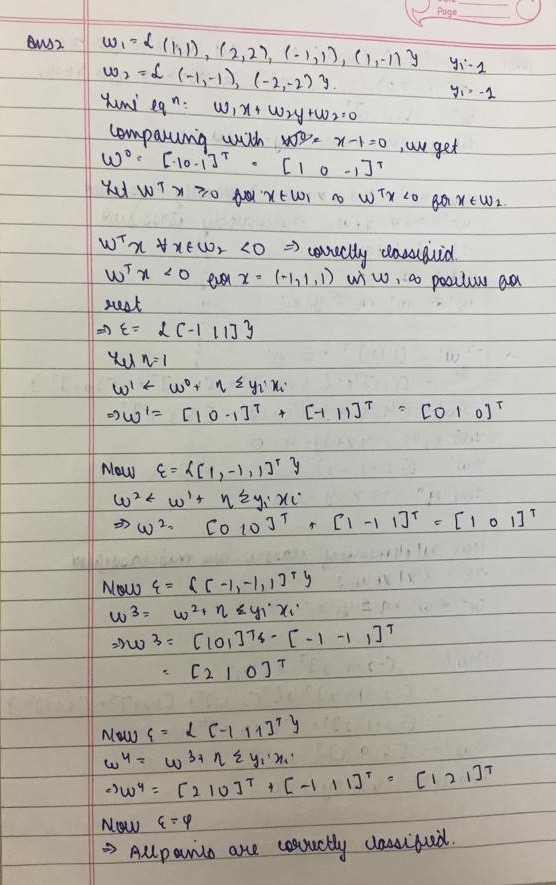 Page
Ans2 w₁ = { (1,1), (2,2), (-1,1), (1,-1) } yi=1
w₂ = { (-1,-1), (-2,-2) }. yi=-1
Line eqⁿ: w₁x + w₂y + w₂ = 0
Comparing with x-1=0, we get
W⁰ = [10-1]ᵀ = [1 0 -1]ᵀ
Let Wᵀx ≥0 for x∈w₁ & Wᵀx <0 for x∈w₂.
Wᵀx ∀x∈w₂ <0 ⇒ correctly classified.
Wᵀx <0 for x = (-1,1,1) in w, & positive for
rest
⇒ ε = { [-1 1 1] }
Let η=1
w¹ ← w⁰ + η Σyi xi
⇒ w¹ = [1 0 -1]ᵀ + [-1 1 1]ᵀ = [0 1 0]ᵀ
Now ε = {[1,-1,1]ᵀ}
w² ← w¹ + η Σyi xi
⇒ w² = [0 1 0]ᵀ + [1 -1 1]ᵀ = [1 0 1]ᵀ
Now ε = { [-1,-1,1]ᵀ }
w³ = w² + η Σyi xi
⇒ w³ = [1 0 1]ᵀ - [-1 -1 1]ᵀ
= [2 1 0]ᵀ
Now ε = { [-1 1 1]ᵀ }
w⁴ = w³ + η Σyi xi
⇒ w⁴ = [2 1 0]ᵀ + [-1 1 1]ᵀ = [1 2 1]ᵀ
Now ε = φ
⇒ All points are correctly classified.